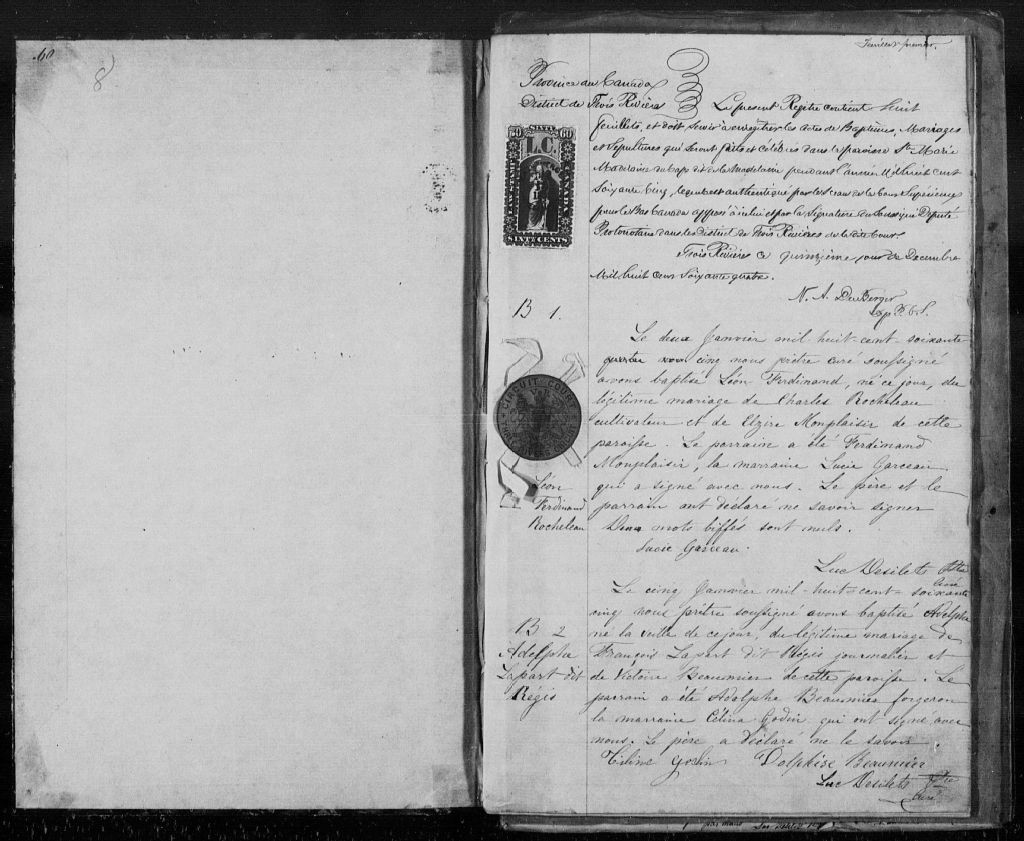 60
8
Feuillet premier.
Province du Canada
District de Trois Rivières
Le present Registre contient huit
feuillets, et doit servir à enregistrer les actes de Baptêmes, Mariages
et Sepultures qui seront faits et célébrés dans la paroisse Ste Marie
Madelaine du Cap dit de la Magdelaine pendant l'année Mil huit cent
Soixante Cinq, lequel est authentiqué par le Sceau de la Cour Supérieure
pour le Bas Canada apposé à icelui et par la Signature du Soussigné Député
Protonotaire dans le District de Trois Rivières de la dite Cour.
Trois Rivières ce quinzième jour de Decembre
Mil huit cent Soixante quatre.
SIXTY
60 60
L.C.
SIXTY CENTS
N. A.
B 1.
Le deux Janvier mil huit-cent-soixante
quatre nous cinq nous prêtre curé soussigné
avons baptisé Léon Ferdinand, né ce jour, du
légitime mariage de Charles Rocheleau
cultivateur et de Elzire Monplaisir de cette
paroisse. Le parrain a été Ferdinand
Monplaisir, la marraine Lucie Garceau
qui a signé avec nous. Le père et le
parrain ont déclaré ne savoir signer
Deux mots biffés sont nuls.
CIRCUIT COURT
Léon
Ferdinand
Rocheleau
Lucie Garceau
Luc Desilets Ptre
Curé
Le cinq Janvier mil-huit-cent-soixante
cinq nous prêtre soussigné avons baptisé Adolphe
né la veille de ce jour, du légitime mariage de
François Lapart dit Régis journalier et
de Victoire Beaumier de cette paroisse. Le
parrain a été Adolphe Beaumier forgeron
la marraine Célina Godin qui ont signé avec
nous. Le père a déclaré ne le savoir.
B 2
Adolphe
Lapart dit
Régis
Céline Godin Dolphise Beaumier
Luc Desilets Ptre
Curé